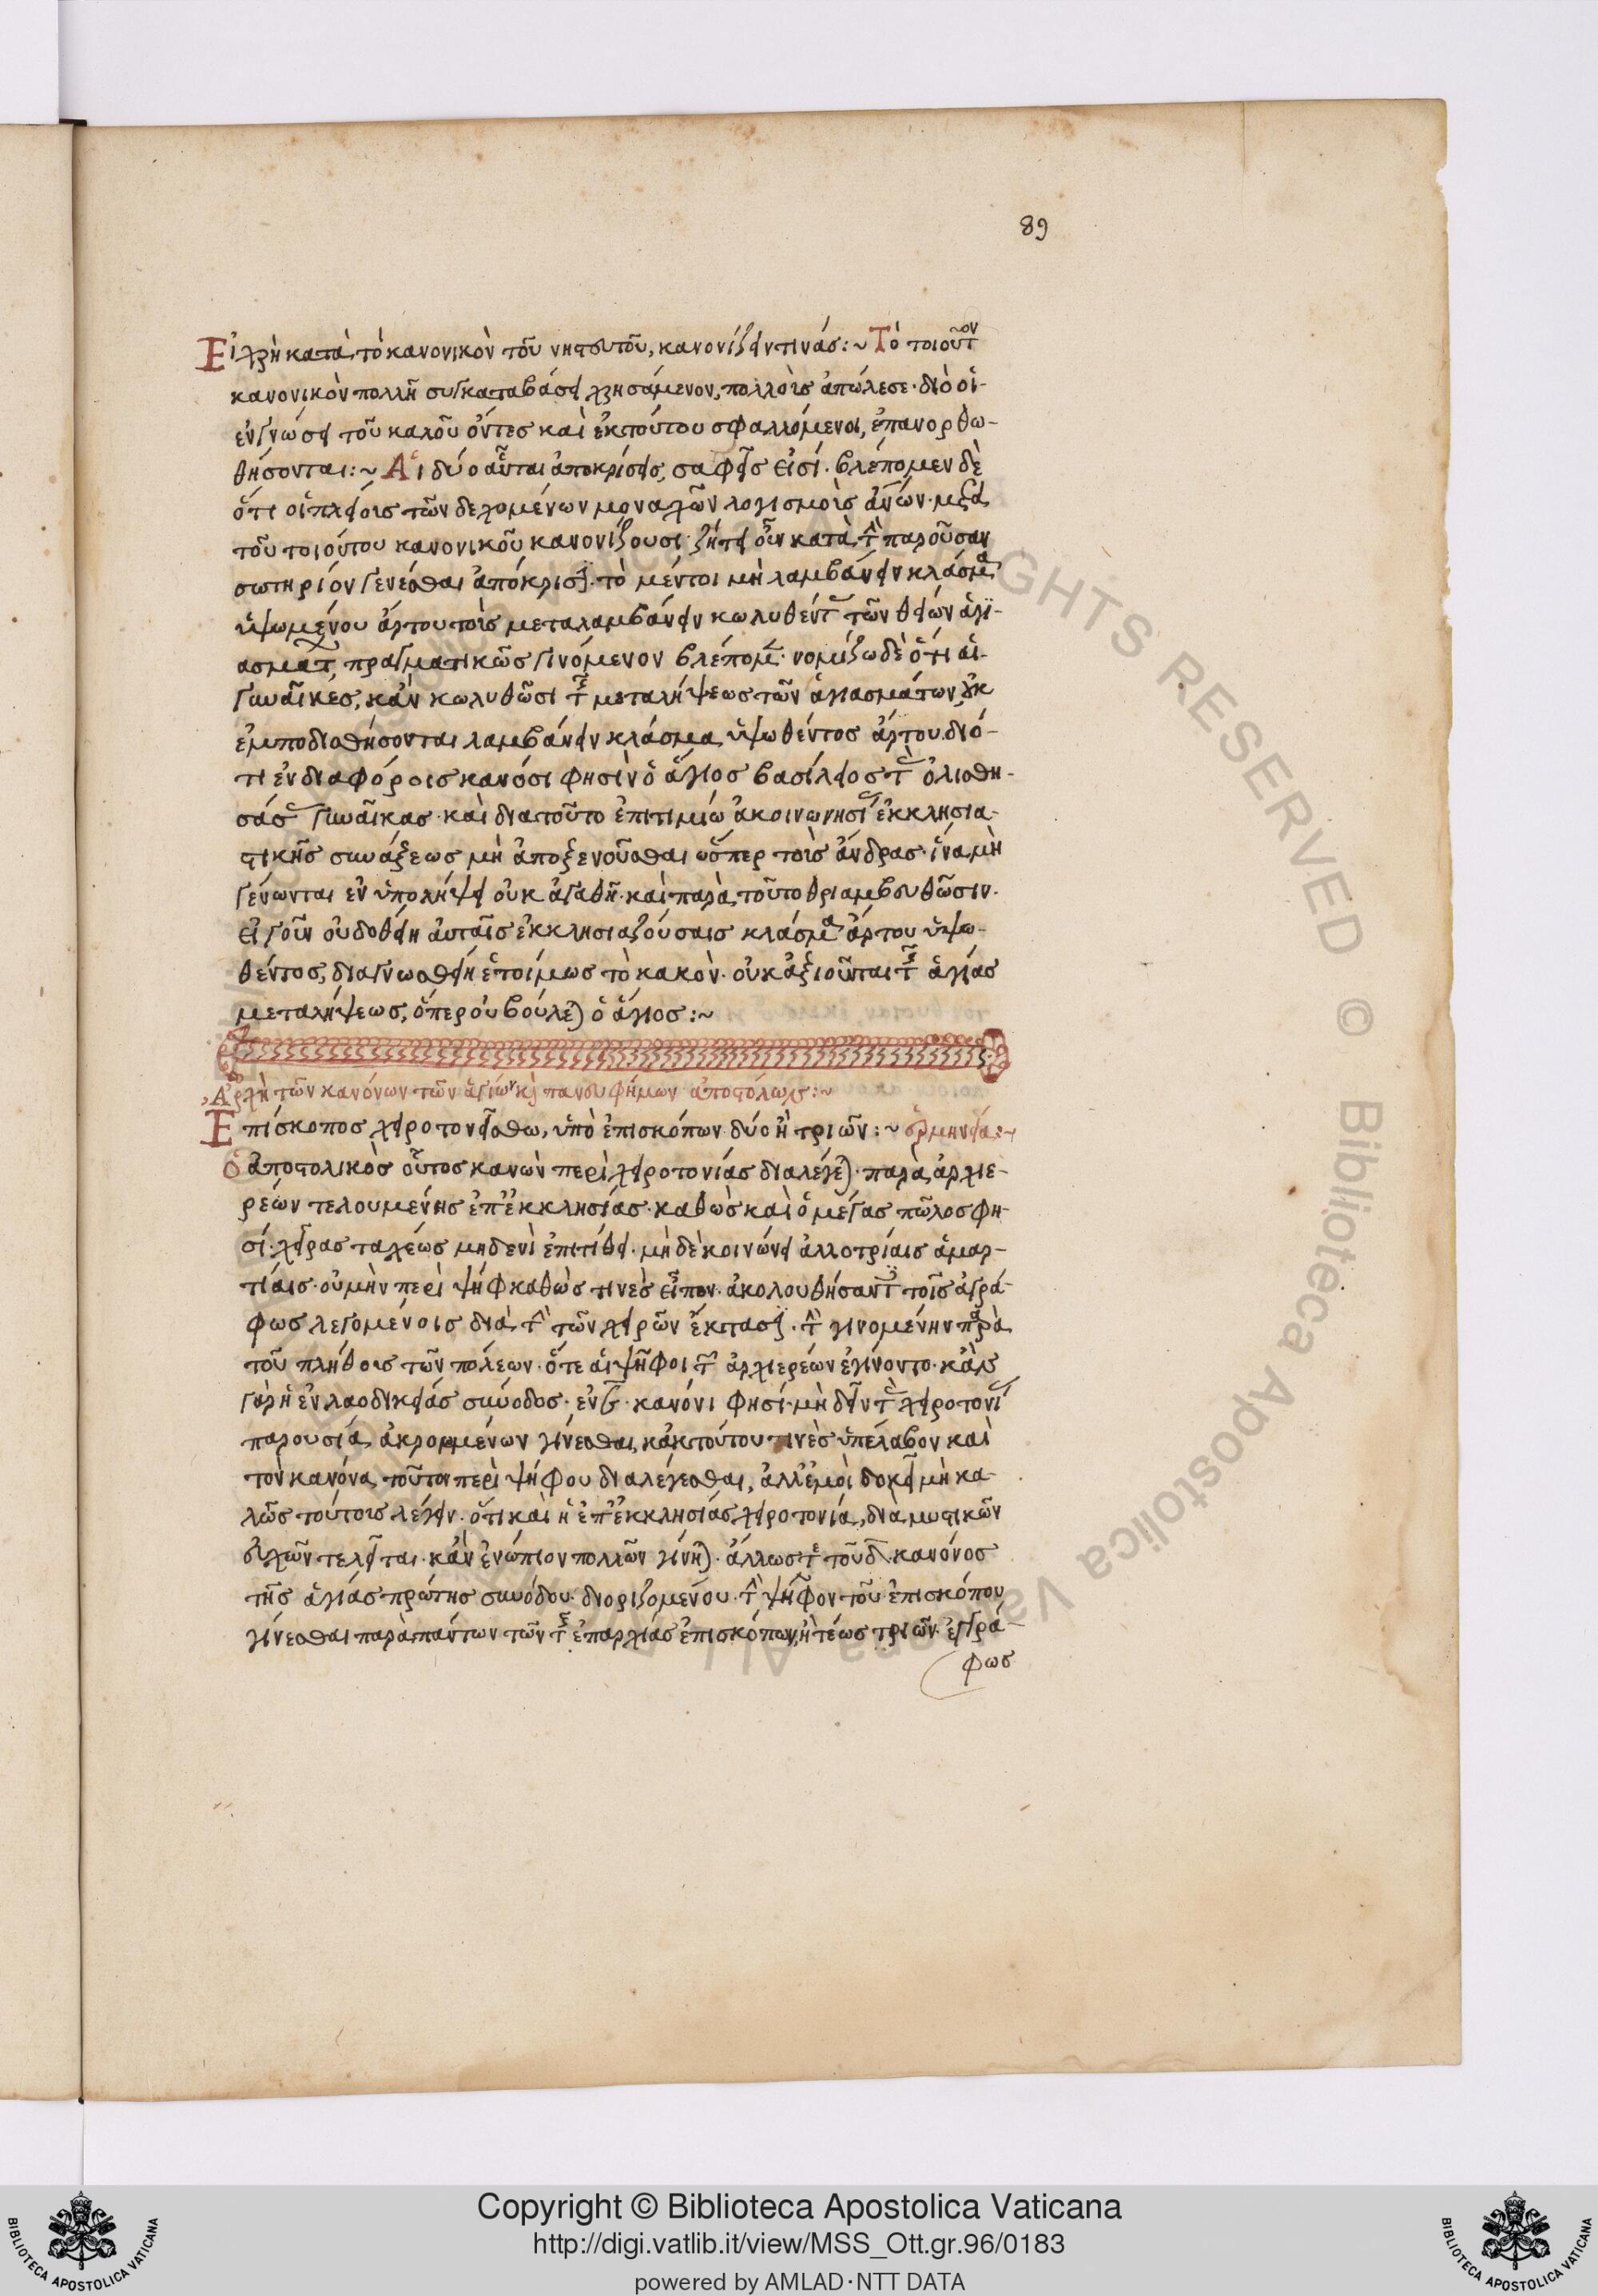 89
Εἰ χρὴ κατὰ τὸ κανονικὸν τοῦ νηστευτοῦ, κανονίζειν τινάς :~ Τὸ τοιοῦτον
κανονικὸν πολλῇ συγκαταβάσει χρησάμενον, πολλοὺς ἀπώλεσε· διὸ οἱ
ἐν γνώσει τοῦ καλοῦ ὄντες καὶ ἐκ τούτου σφαλλόμενοι, ἐπανορθω-
θήσονται :~ Αἱ δύο αὗται ἀποκρίσεις, σαφεῖς εἰσί. βλέπομεν δὲ
ὅτι οἱ πλείους τῶν δεχομένων μοναχῶν λογισμοὺς ἀνων· μετὰ
τοῦ τοιούτου κανονικοῦ κανονίζουσι· ζήτει οὖν κατὰ τὴν παροῦσαν
σωτηρίον γενέσθαι ἀπόκρισιν· τὸ μέντοι μὴ λαμβάνειν κλάσμα
ὑψωμένου ἄρτου τοὺς μεταλαμβάνειν κωλυθέντας τῶν θείων ἁγι-
ασμάτων, πραγματικῶς γινόμενον βλέπομεν· νομίζω δὲ ὅτι αἱ
γυναῖκες, κἂν κωλυθῶσι τῆς μεταλήψεως τῶν ἁγιασμάτων, οὐκ
ἐμποδισθήσονται λαμβάνειν κλάσμα ὑψωθέντος ἄρτου. διό-
τι ἐν διαφόροις κανόσι φησὶν ὁ ἅγιος βασίλειος τὰς ὀλισθη-
σάσας γυναῖκας· καὶ διὰ τοῦτο ἐπιτιμίῳ ἀκοινωνησίας ἐκκλησια-
στικῆς συνάξεως μὴ ἀποξενοῦσθαι ὥσπερ τοὺς ἄνδρας· ἵνα μὴ
γένωνται ἐν ὑπολήψει οὐκ ἀγαθῇ· καὶ παρὰ τοῦτο θριαμβευθῶσιν.
εἰ γοῦν οὐ δοθείη αὐταῖς ἐκκλησιαζούσαις κλάσμα ἄρτου ὑψω-
θέντος, διαγνωσθείη ἑτοίμως τὸ κακὸν· οὐκ ἀξιοῦνται τῆς ἁγίας
μεταλήψεως, ὅπερ οὐ βούλεται ὁ ἅγιος :~
Ἀρχὴ τῶν κανόνων τῶν ἁγίων καὶ πανευφήμων ἀποστόλων :~
Ἐπίσκοπος χειροτονείσθω, ὑπὸ ἐπισκόπων δύο ἢ τριῶν :~ ἑρμηνεία :~
ὁ ἀποστολικὸς οὗτος κανὼν περὶ χειροτονίας διαλέγεται· παρὰ ἀρχιε-
ρέων τελουμένης ἐπ' ἐκκλησίας· καθὼς καὶ ὁ μέγας παῦλος φη-
σί· χεῖρας ταχέως μηδενὶ ἐπιτίθει· μὴ δὲ κοινώνει ἀλλοτρίαις ἁμαρ-
τίαις· οὐ μὴν περὶ ψήφου καθώς τινὲς εἶπον· ἀκολουθήσαντες τοῖς ἀγρά-
φως λεγομένοις διὰ τὴν τῶν χειρῶν ἔκτασιν· τὴν γινομένην παρὰ
τοῦ πλήθους τῶν πόλεων· ὅτε αἱ ψῆφοι τῶν ἀρχιερέων ἐγίνοντο· κἂν
γὰρ ἡ ἐν λαοδικείας σύνοδος· ἐν ε κανόνι φησί· μὴ δεῖν τὰς χειροτονίας
παρουσίᾳ ἀκροωμένων γίνεσθαι, κἀκ τούτου τινὲς ὑπέλαβον καὶ
τὸν κανόνα τοῦτον περὶ ψήφου διαλέγεσθαι, ἀλλ' ἐμοὶ δοκεῖ μὴ κα-
λῶς τούτους λέγειν· ὅτι καὶ ἡ ἐπ' ἐκκλησίας χειροτονία, διὰ μυστικῶν
εὐχῶν τελεῖται· κἂν ἐνώπιον πολλῶν γίνηται· ἄλλως τε τοῦ δ κανόνος
τῆς ἁγίας πρώτης συνόδου· διοριζομένου· τὴν ψῆφον τοῦ ἐπισκόπου
γίνεσθαι παρὰ πάντων τῶν τῆς ἐπαρχίας ἐπισκόπων, ἢ τέως τριῶν· ἐγγρά-
φως
RIGHTS RESERVED © Biblioteca Apostolica Vaticana
Copyright © Biblioteca Apostolica Vaticana
http://digi.vatlib.it/view/MSS_Ott.gr.96/0183
powered by AMLAD·NTT DATA
BIBLIOTECA APOSTOLICA VATICANA
BIBLIOTECA APOSTOLICA VATICANA